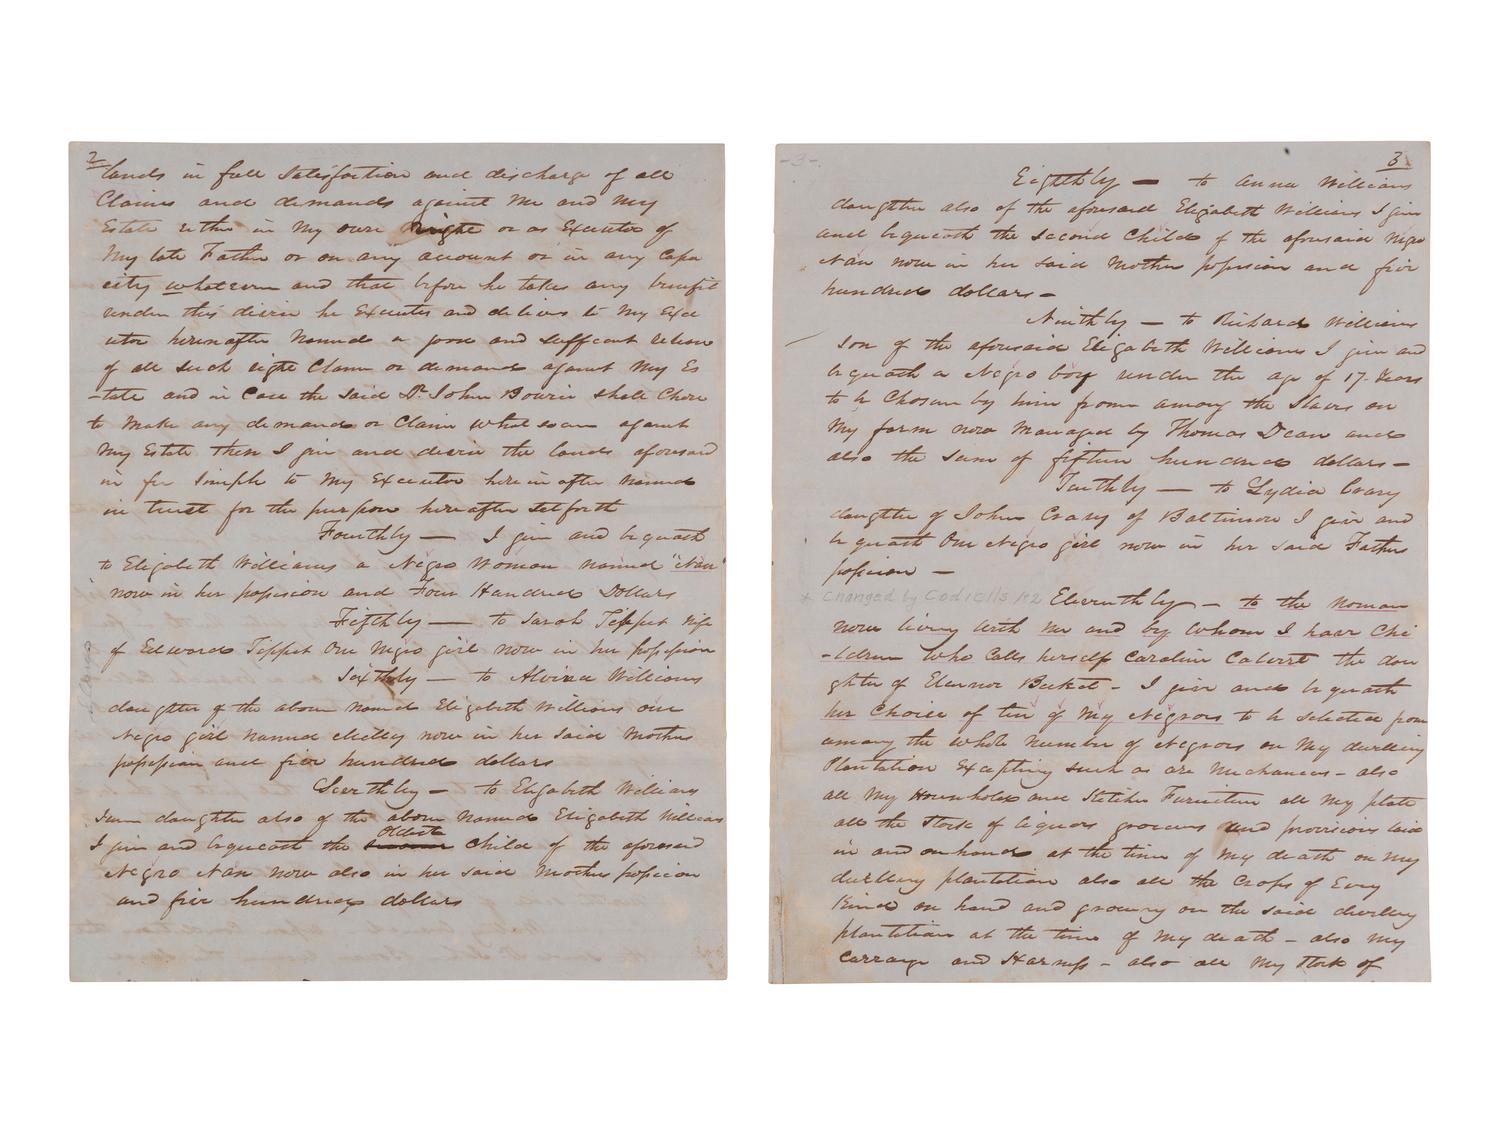 2
lands in full satisfaction and discharge of all
Claims and demands against me and my
Estate either in my own right or as Executor of
My late Father or on any account or in any Capa
city whatsoever and that before he takes any benefit
under this devise he Executes and delivers to my Exe
utor hereinafter named a good and sufficent release
of all such right Claim or demands against My Es
-tate and in Case the said Dr. John Bowie shall Chose
to make any demands or Claim whatsoever against
My Estate then I give and devise the lands aforesaid
in fee simple to My Executor herein after named
in trust for the purpose hereafter set forth
Fourthly — I give and bequeath
to Elizabeth Williams a Negro Woman named "Nan"
now in her possession and Four Hundred Dollars
Fifthly — to Sarah Tippet wife
of Edward Tippet One Negro girl now in her possession
Sixthly — to Alvina Williams
daughter of the above named Elizabeth Williams one
Negro girl named now in her said Mothers
possession and five hundred dollars
— to Elizabeth Williams
daughter also of the above named Elizabeth Williams
Oldest
I give and bequeath the child of the aforesaid
Negro Nan now also in her said Mothers possession
and five hundred dollars
-3-.
3
Eighthly — to Anna Williams
daughter also of the aforesaid Elizabeth Williams I give
and bequeath the second Child of the aforesaid Negro
Nan now in her said Mothers possession and five
hundred dollars -
Ninthly — to Richard Williams
son of the aforesaid Elizabeth Williams I give and
bequeath a Negro boy under the age of 17 Years
to be Chosen by him from among the Slaves on
My farm now managed by Thomas Dean and
also the sum of fifteen hundred dollars -
Tenthly — to Lydia Crary
daughter of John Crary of Baltimore I give and
bequeath One Negro girl now in her said Fathers
possession —
* Changed by Codicils 1+2 Eleventhly — to the woman
now living with me and by whom I have Chi
-ldren who Calls herself Caroline Calvert the dau
ghter of Eleanor Becket - I give and bequeath
her Choice of ten of My Negroes to be selected from
among the whole number of Negroes on My dwelling
Plantation Excepting such as are Mechanics - also
all My Household and Kitchen Furniture all My plate
all the Stock of liquors groceries and provisions laid
in and on hand at the time of My death on My
dwelling plantation also all the Crops of Every
Kind on hand and growing on the said dwelling
plantation at the time of My death - also My
Carriage and Harness - also all My Stock of